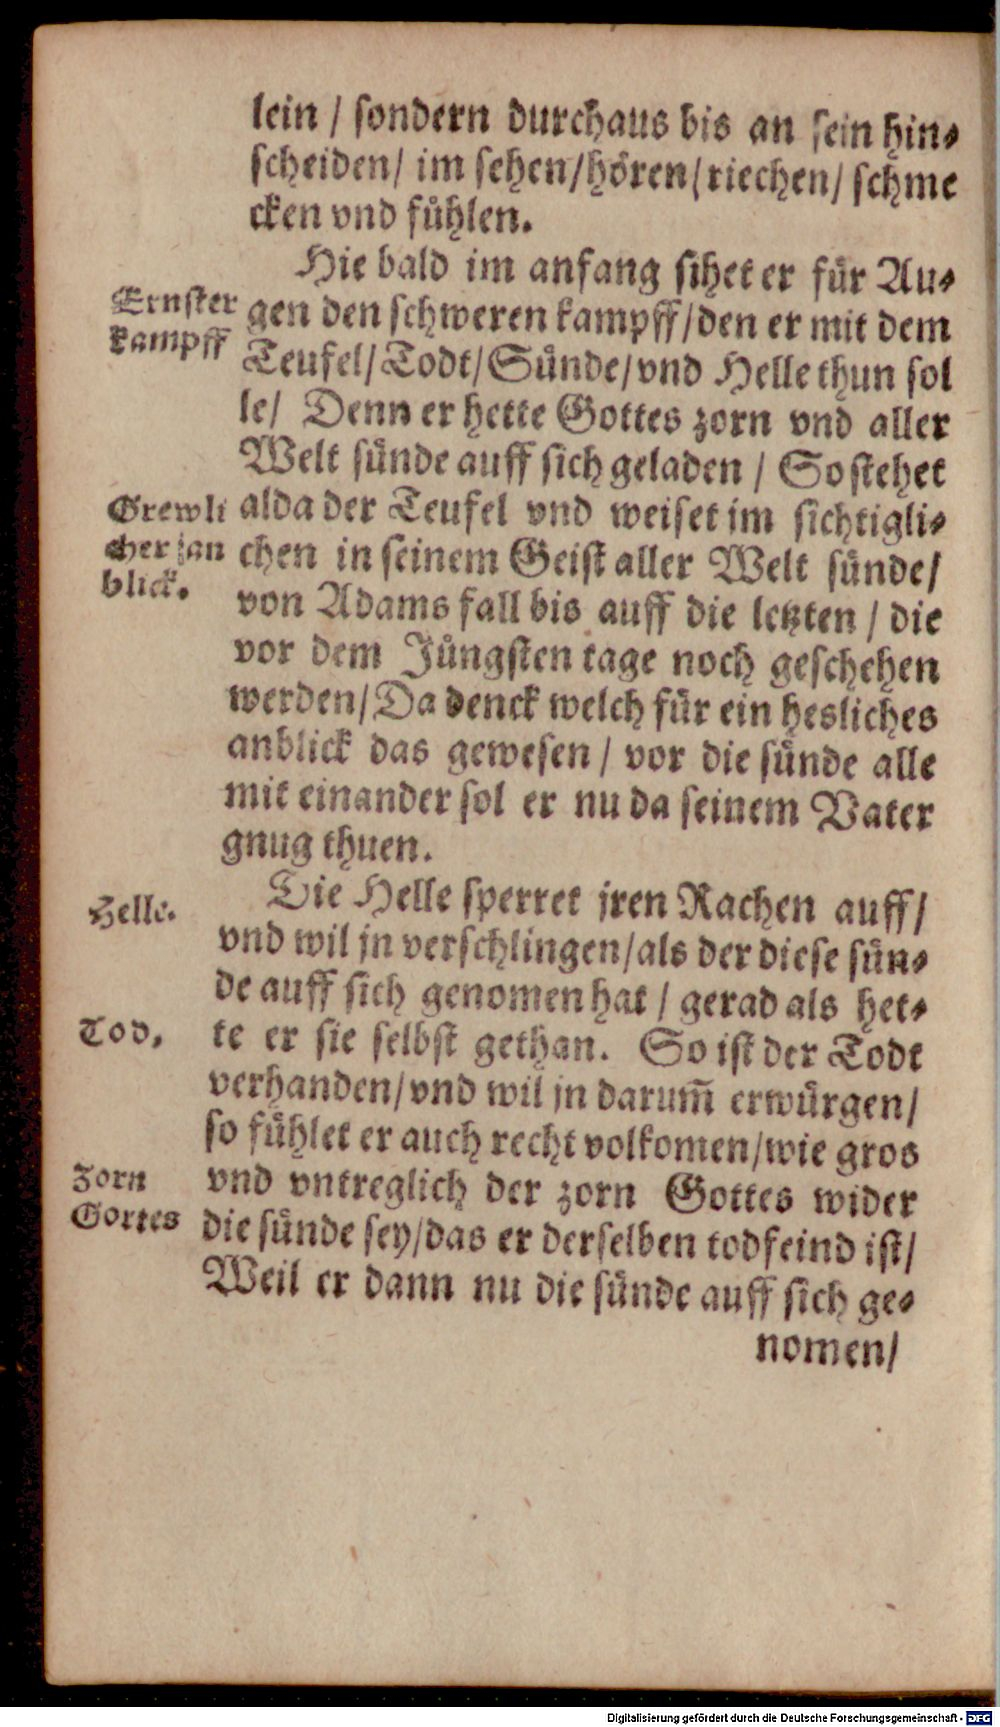 lein / sondern durchaus bis an sein hin⸗
scheiden/ im sehen/hören/riechen/ schme
cken vnd fühlen.
Hie bald im anfang sihet er für Au⸗
Ernster
gen den schweren kampff/den er mit dem
kampff
Teufel/Todt/Sünde/vnd Helle thun sol
le/ Denn er hette Gottes zorn vnd aller
Welt sünde auff sich geladen / So stehet
Grewli
alda der Teufel vnd weiset im sichtigli⸗
cher an
chen in seinem Geist aller Welt sünde/
blick.
von Adams fall bis auff die letzten / die
vor dem Jüngsten tage noch geschehen
werden/Da denck welch für ein hesliches
anblick das gewesen / vor die sünde alle
mit einander sol er nu da seinem Vater
gnug thuen.
Die Helle sperret jren Rachen auff/
Helle.
vnd wil jn verschlingen/als der diese sün⸗
de auff sich genomen hat / gerad als het⸗
Tod,
te er sie selbst gethan. So ist der Todt
verhanden/vnd wil jn darum̃ erwürgen/
so fühlet er auch recht volkomen/wie gros
Zorn
vnd vntreglich der zorn Gottes wider
Gottes
die sünde sey/das er derselben todfeind ist/
Weil er dann nu die sünde auff sich ge⸗
nomen/
Digitalisierung gefördert durch die Deutsche Forschungsgemeinschaft - DFG